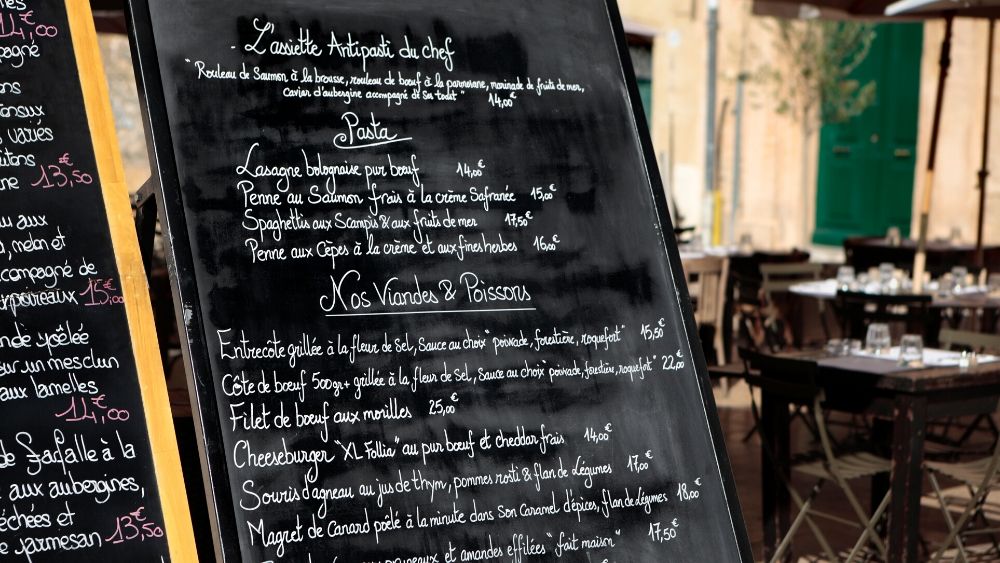 14,00€
pagné
ons
variés
13,50€
melon et
15,00€
sur un mesclun
aux lamelles
14,00€
de farfalle à la
aux aubergines,
et
parmesan 13,50€
- L'assiette Antipasti du chef
"Rouleau de Saumon à la brousse, rouleau de bœuf à la parmesane, marinade de fruits de mer,
Caviar d'aubergine accompagné de Ses toast" 14,00€
Pasta
Lasagne bolognaise pur bœuf 14,00€
Penne au Saumon frais à la crème Safranée 15,00€
Spaghettis aux Scampis & aux fruits de mer 17,50€
Penne aux Cèpes à la crème et aux fines herbes 16,00€
Nos Viandes & Poissons
Entrecôte grillée à la fleur de Sel, Sauce au choix "poivrade, forestière, roquefort" 15,50€
Côte de bœuf 500gr+ grillée à la fleur de Sel, Sauce au choix "poivrade, forestière, roquefort" 22,00€
Filet de bœuf aux morilles 25,00€
Cheeseburger "XL Follia" au pur bœuf et cheddar frais 14,00€
Souris d'agneau au jus de thym, pommes rosti & flan de Légumes 17,00€
Magret de Canard poêlé à la minute dans Son Caramel d'épices, flan de Légumes 18,00€
pruneaux et amandes effilées "fait maison" 17,50€